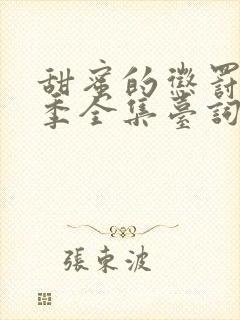 甜蜜的懲罰
季全集臺詞
張東波